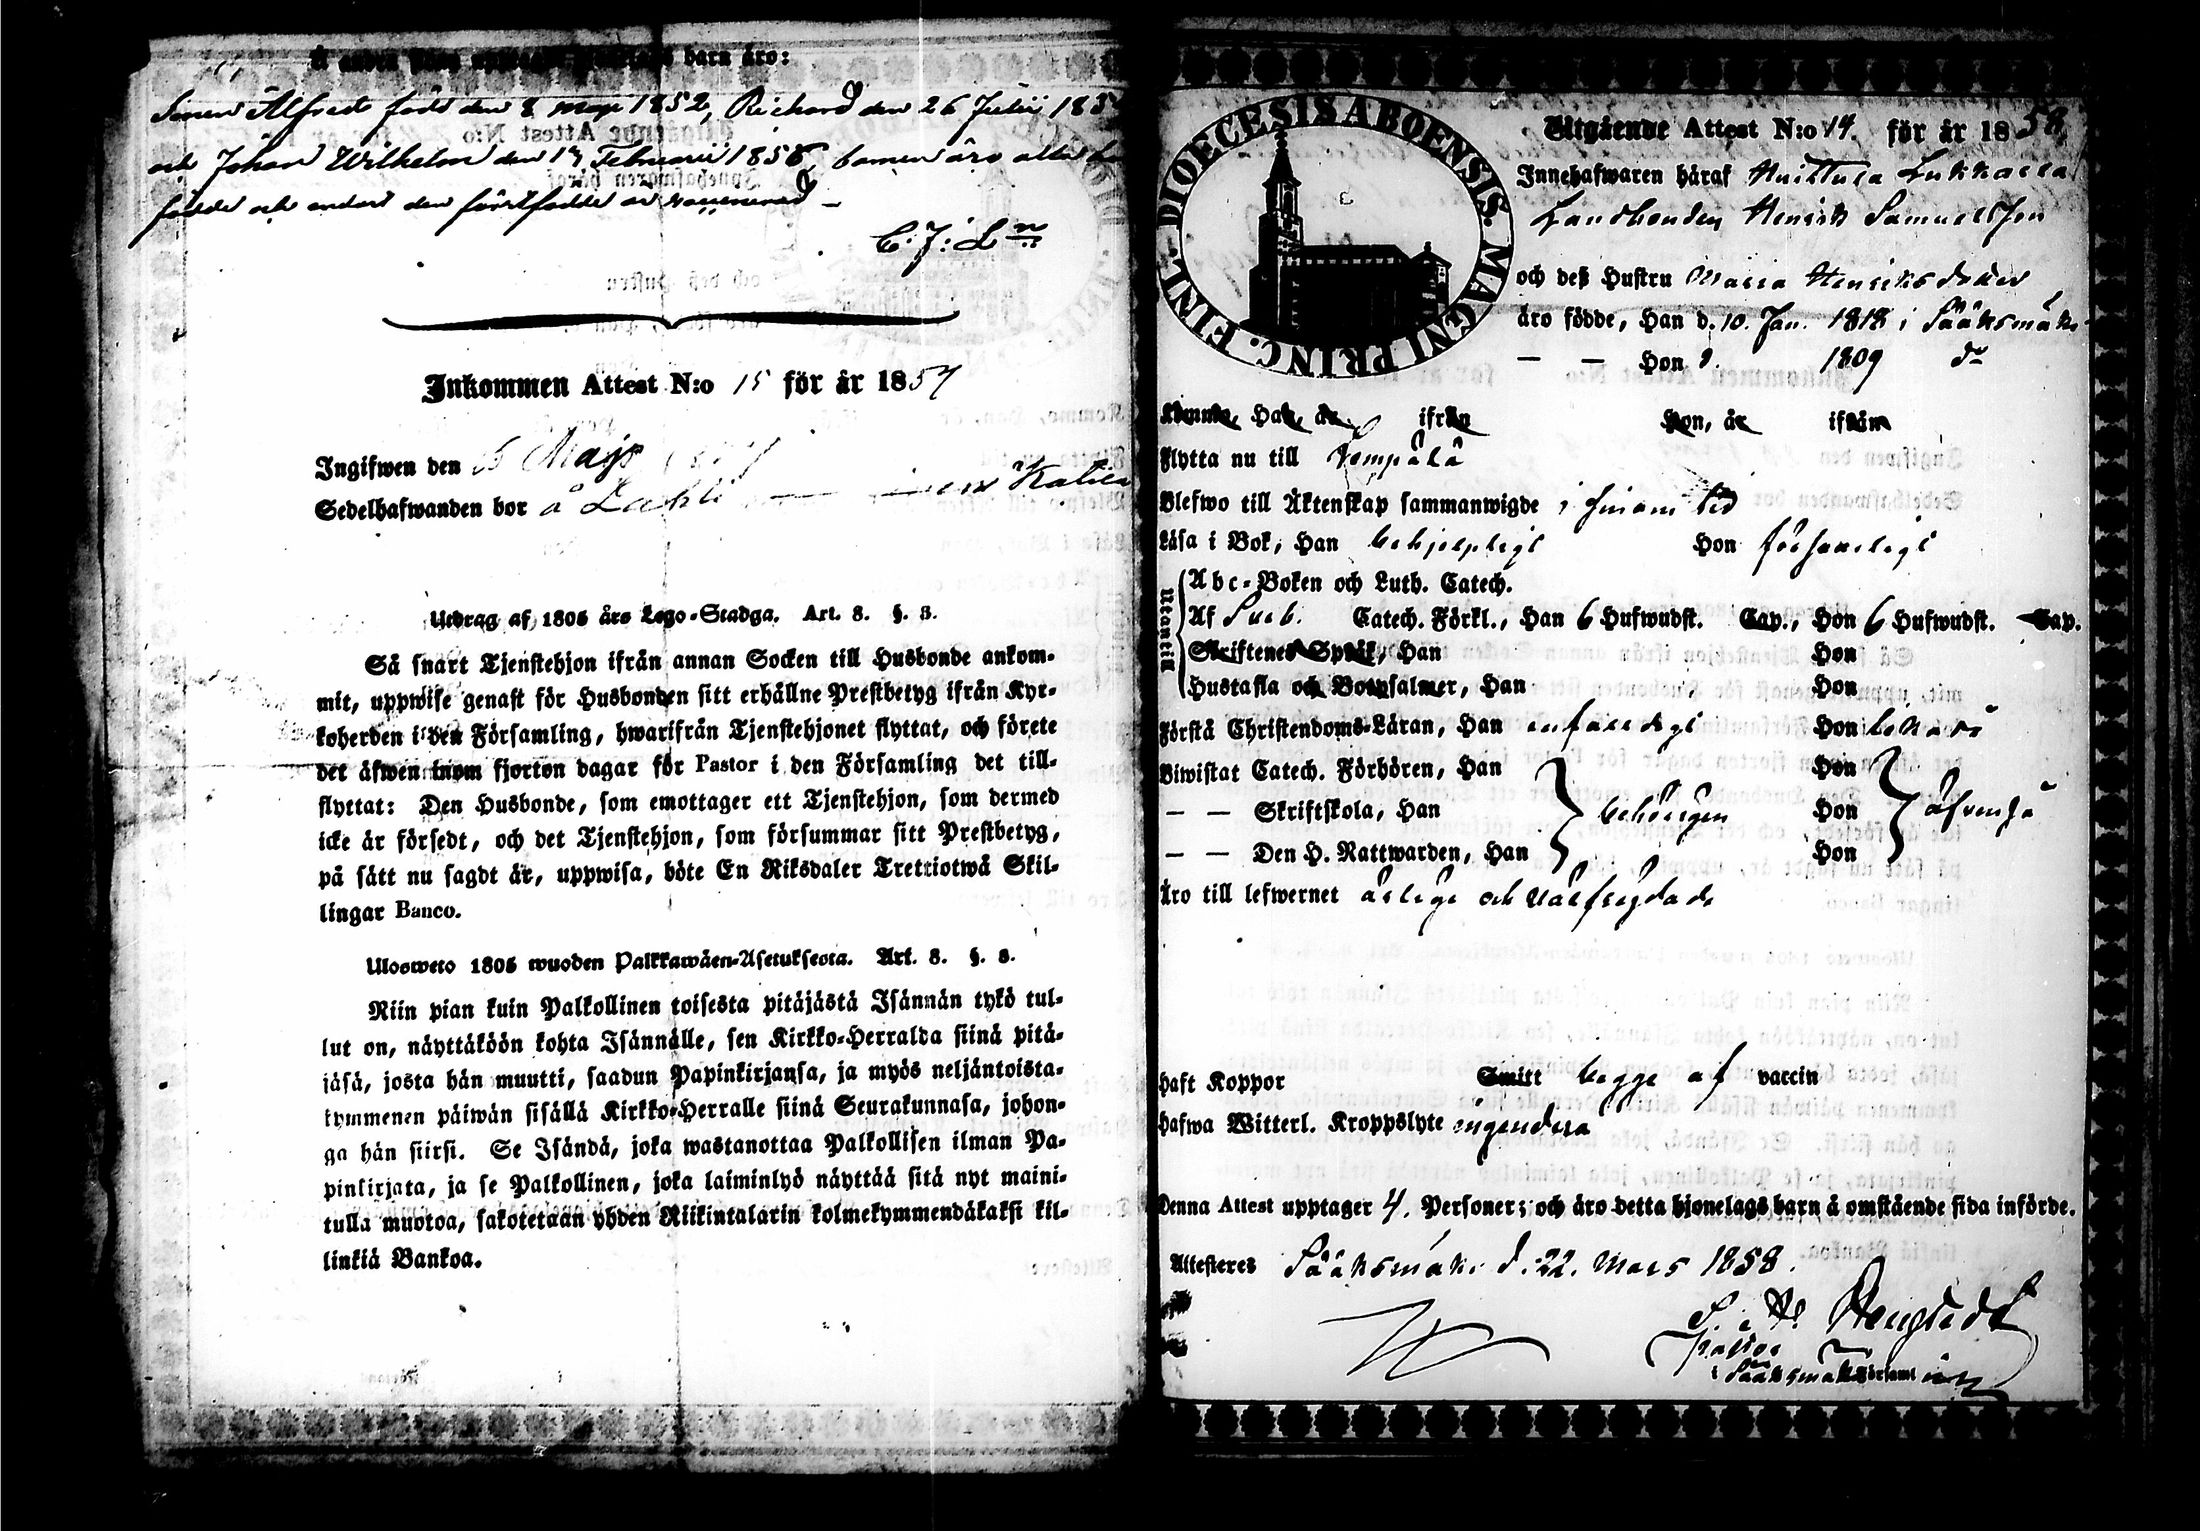 Å andra sidan barn äro:
Sonen Alfred född den 8 Maji 1852, Richard den 26 Julii 185
och Johan Wilhelm den 17 Februarii 1856, barnen äro alla
födde och endast den förstfödde är vaccinerad –
C: J: L–n
Inkommen Attest N:o 15 för år 1857
Ingifwen den Maji
Sedelhafwanden bor å Lahti
Utdrag af 1805 års Lego-Stadga. Art. 8. §. 8.
Så snart Tjenstehjon ifrån annan Socken till Husbonde ankom-
mit, uppwise genast för Husbonden sitt erhållne Prestbetyg ifrån Kyr-
koherden i den Församling, hwarifrån Tjenstehjonet flyttat, och förete
det äfwen inom fjorton dagar för Pastor i den Församling det till-
flyttat: Den Husbonde, som emottager ett Tjenstehjon, som dermed
icke är försedt, och det Tjenstehjon, som försummar sitt Prestbetyg,
på sätt nu sagdt är, uppwisa, böte En Riksdaler Trettiotwå Skil-
lingar Banco.
Ulosweto 1805 wuoden Palkkawäen-Asetuksesta. Art. 8. §. 8.
Niin pian kuin Palkollinen toisesta pitäjästä Isännän tykö tul-
lut on, näyttäköön kohta Isännälle, sen Kirkko-Herralda siinä pitä-
jäsä, josta hän muutti, saadun Papinkirjansa, ja myös neljäntoista-
kymmenen päiwän sisällä Kirkko-Herralle siinä Seurakunnasa, johon-
ga hän siirsi. Se Isändä, joka wastanottaa Palkollisen ilman Pa-
pinkirjata, ja se Palkollinen, joka laiminlyö näyttää sitä nyt maini-
tulla muotoa, sakotetaan yhden Riikintalarin kolmekymmendäkaksi kil-
linkiä Bankoa.
DIOECESIS ABOENSIS. MAGNI PRINC. FINL.
Utgående Attest N:o 14 för år 1858.
Innehafwaren häraf Huittula Lukkarla
Landbonden Henrik Samuelsson
och deß Hustru Maria Henriksdotter
äro födde, Han d. 10. Jan. 1818 i Sääksmäki
— — Hon d. 1809 do
Komne, Han, är ifrån Hon, är ifrån
Flytta nu till Lempälä
Blefwo till Äktenskap sammanwigde i sinom tid
Läsa i Bok, Han behjelpligt Hon förswarligt
Utantill
Abc-Boken och Luth. Catech.
Af Sveb. Catech. Förkl., Han 6 Hufwudst. Cap., Hon 6 Hufwudst. Cap.
Skriftenes Språk, Han Hon
Hustafla och Botpsalmer, Han Hon
Förstå Christendoms-Läran, Han enfaldigt Hon lika så
Biwistat Catech. Förhören, Han Hon
— — Skriftskola, Han behörigen Hon äfvenså
— — Den H. Nattwarden, Han Hon
Äro till lefwernet ärlige och välfrägdade
haft Koppor Smitt begge af vaccin
hafwa Witterl. Kroppslyte ingendera
Denna Attest upptager 4. Personer; och äro detta hjonelags barn å omstående sida införde.
Attesteres Sääksmäki d. 22. Mars 1858.
Pastor
i Sääksmäki Församl